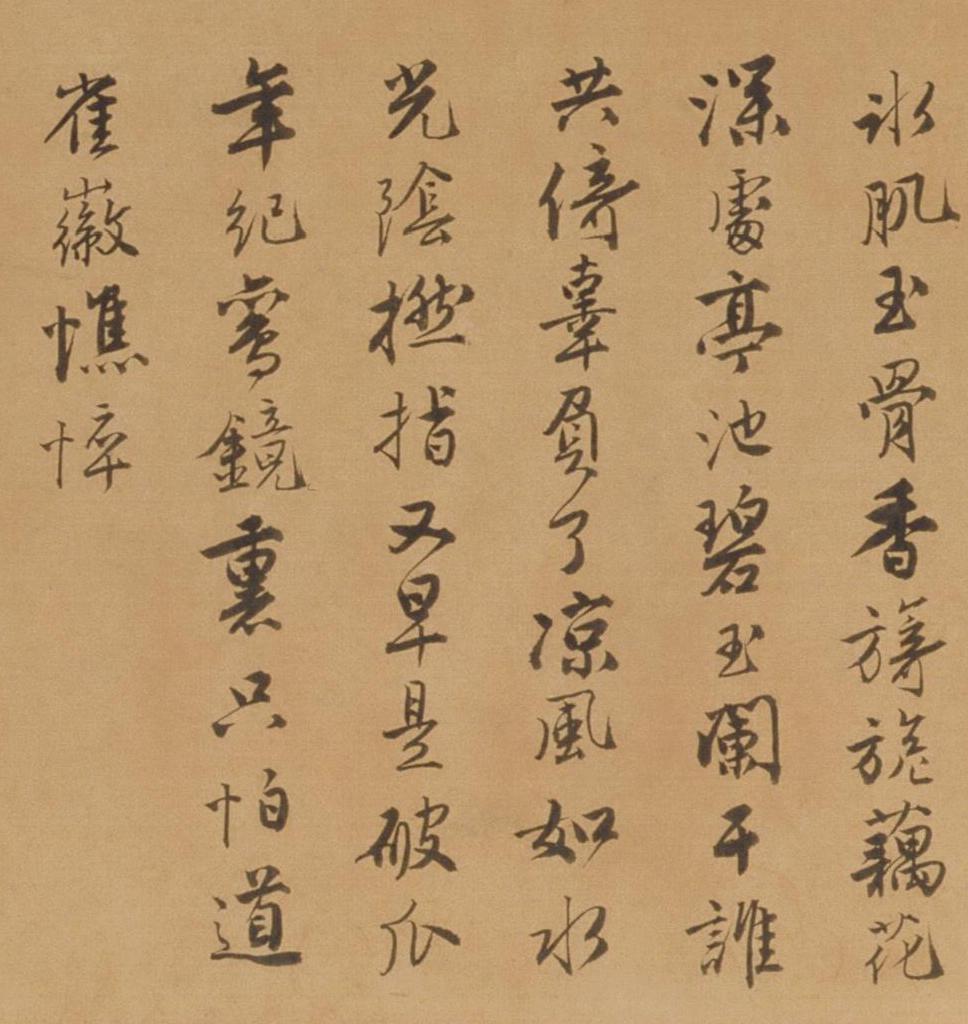 冰肌玉骨香旖旎藕花
深處亭池碧玉闌干誰
共倚辜負了涼風如水
光陰撚指又早是破瓜
年紀鸞鏡裏只怕道
崔徽憔悴